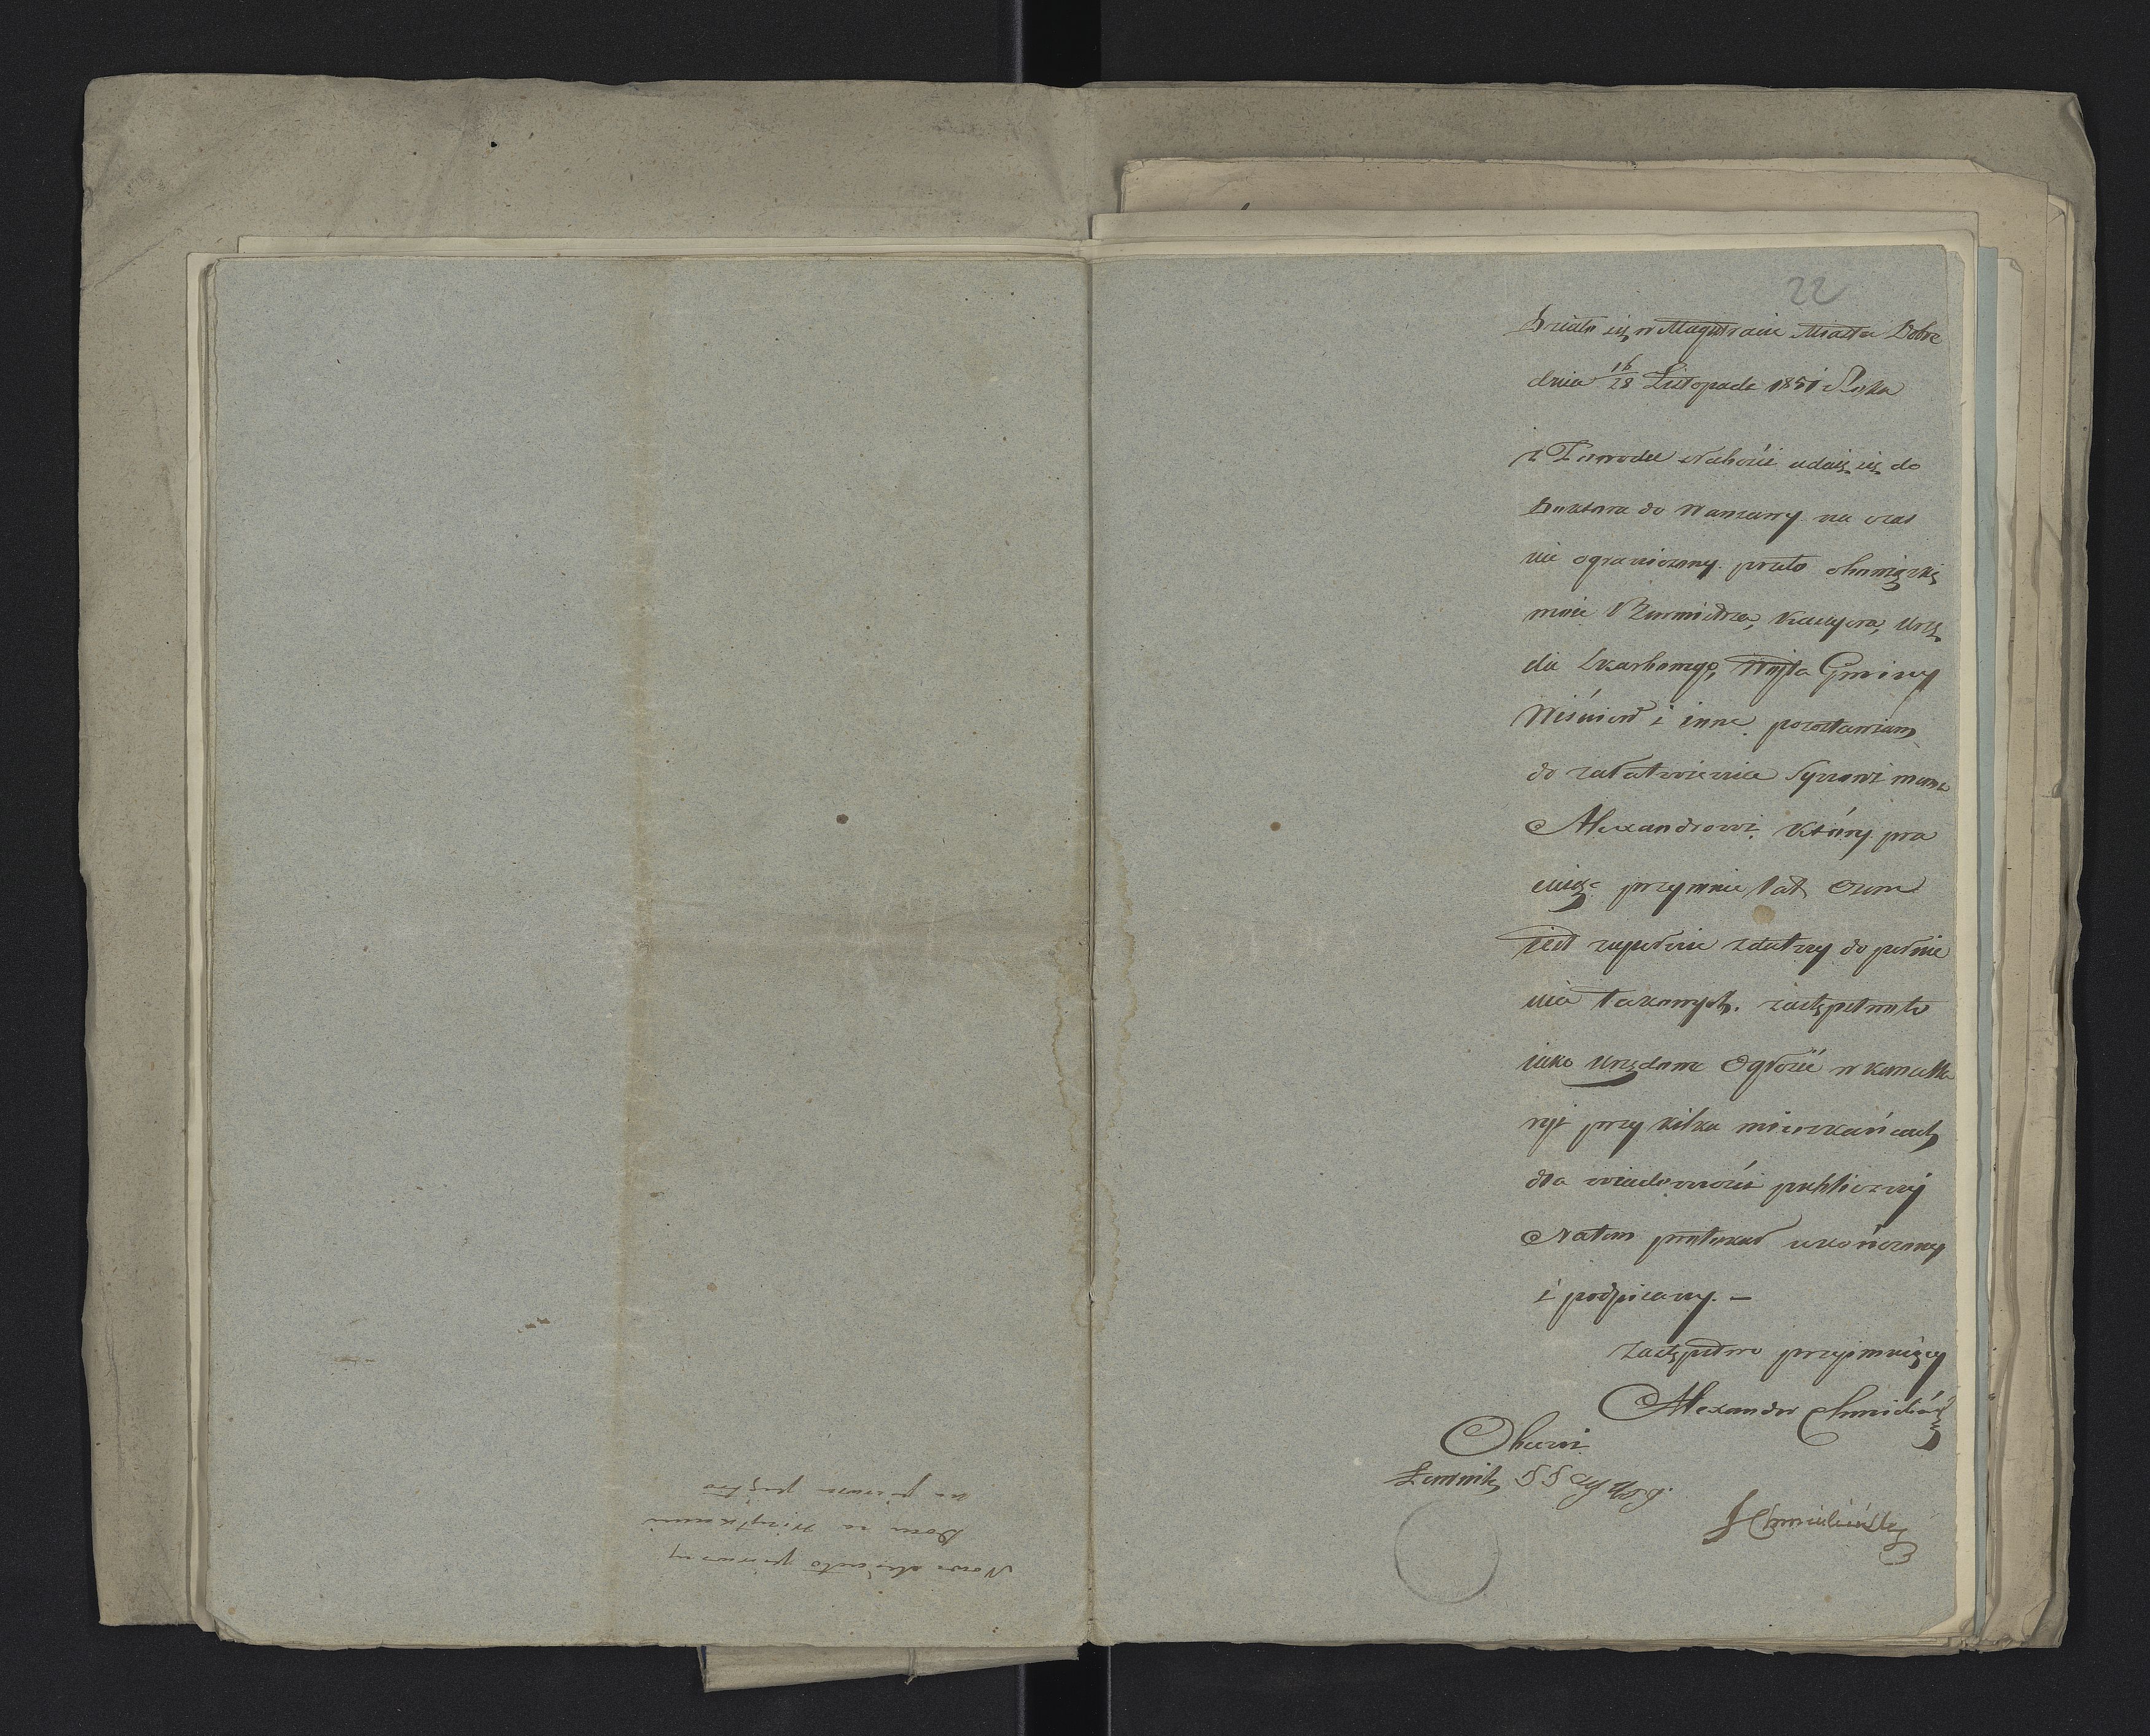 22
Działo się w Magistracie Miasta Dobre
dnia 16/28 Listopada 1851 Roku
z Powodu słabości udaię się do
Doktora do Warszawy na czas
nie ograniczony. przeto obowiązki
moie Burmistrza, Kassyera, Urzę
du Skarbowego, Wójta Gminy
Wiśniew i inne pozostawiam
do załatwienia Synowi memu
Alexandrowi. który pra
cuiąc przy mnie lat
jest zupełnie zdatny do pełnie
nia takowych. zastępstwo
iako Urzędowe Ogłosić w kancella
ryi przy kilku mieszkańcach
dla wiadomości publicznej
Natem protokuł ukończony
i podpisany. —
Zastępstwo przyjmuiący
Alexander Chmieliński
Obecni
Chmieliński
Nowe
Dom za
na